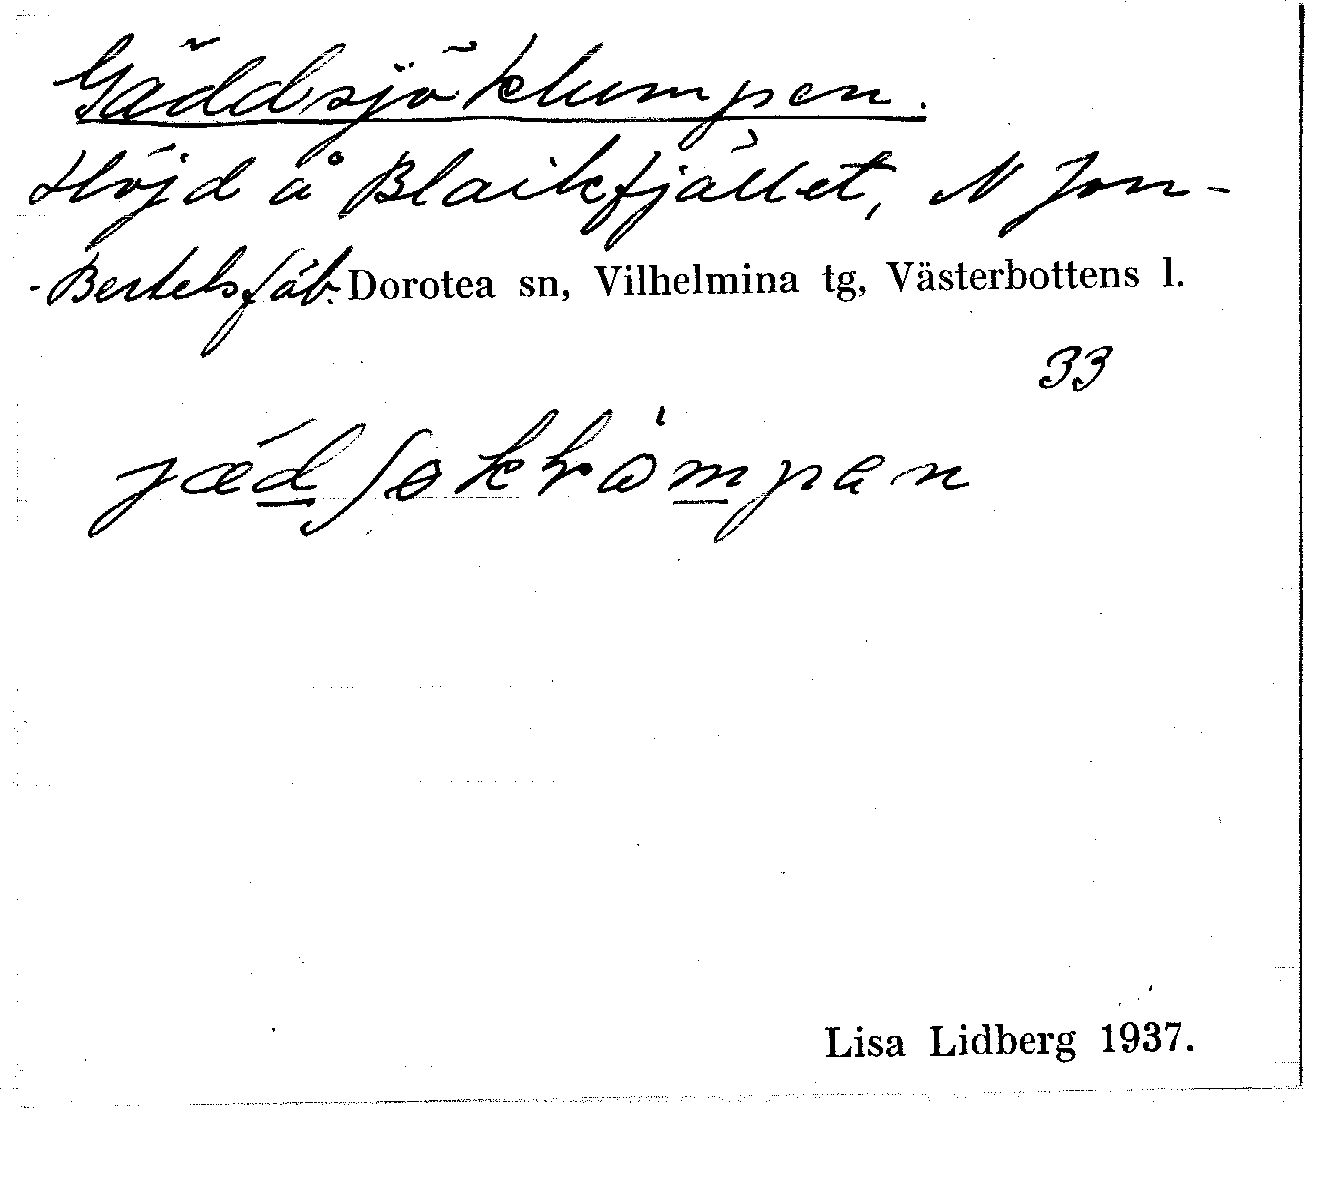 Gäddsjöklumpen.
Höjd å Blaikfjället, N Jon-
-Bertelsfäb. Dorotea sn, Vilhelmina tg, Västerbottens l.
33
Lisa Lidberg 1937.